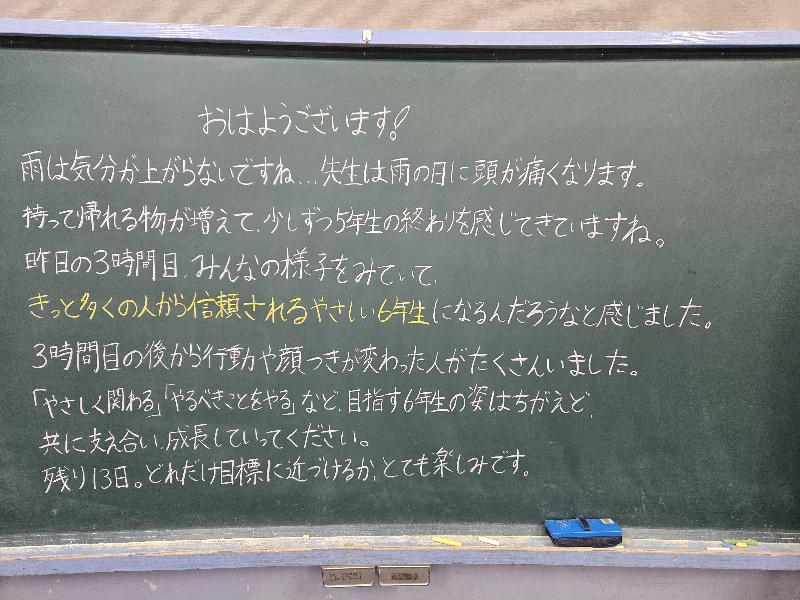 おはようございます!
雨は気分が上がらないですね...先生は雨の日に頭が痛くなります。
持って帰れる物が増えて、少しずつ5年生の終わりを感じてきていますね。
昨日の3時間目、みんなの様子をみていて、
きっと多くの人から信頼されるやさしい6年生になるんだろうなと感じました。
3時間目の後から行動や顔つきが変わった人がたくさんいました。
「やさしく関わる」「やるべきことをやる」など、目指す6年生の姿はちがえど、
共に支え合い、成長していってください。
残り13日。どれだけ目標に近づけるか、とても楽しみです。